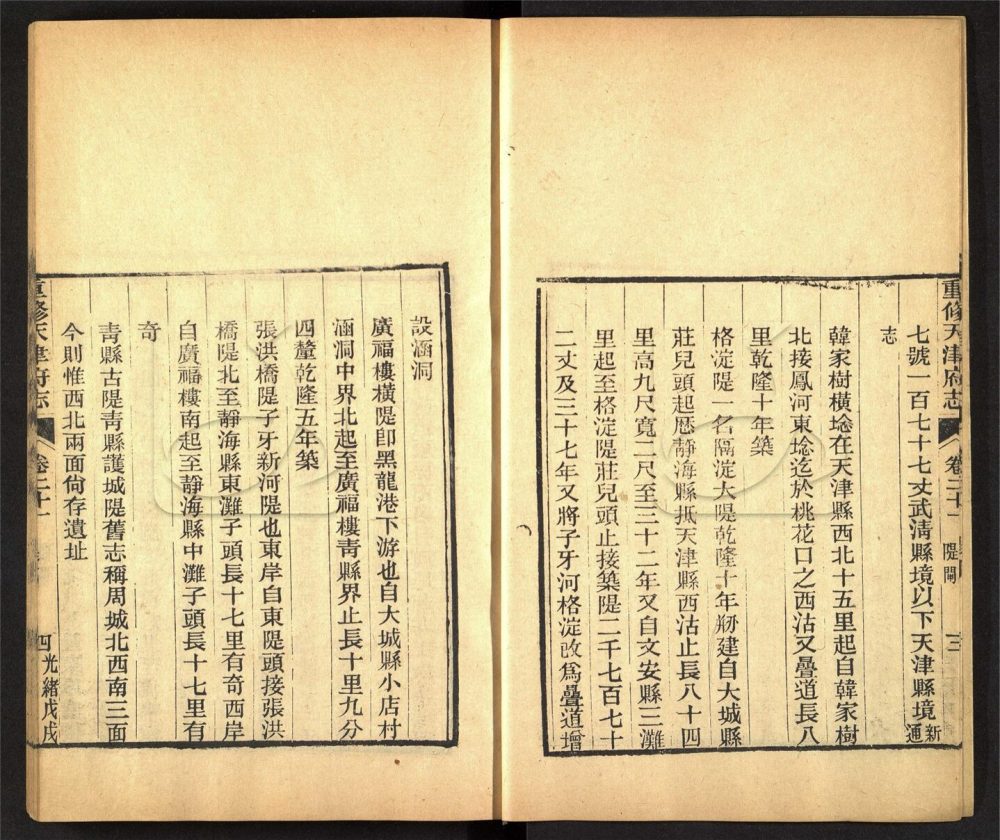 重修天津府志 卷二十一 隄閘 三
七號一百七十七丈武淸縣境以下天津縣境新通
志
韓家樹橫埝在天津縣西北十五里起自韓家樹
北接鳳河東埝迄於桃花口之西沽又疊道長八
里乾隆十年築
格淀隄一名隔淀大隄乾隆十年剏建自大城縣
莊兒頭起歷靜海縣抵天津縣西沽止長八十四
里高九尺寬二尺至三十二年又自文安縣三灘
里起至格淀隄莊兒頭止接築隄二千七百七十
二丈及三十七年又將子牙河格淀改爲疊道增
設涵洞
廣福樓橫隄卽黑龍港下游也自大城縣小店村
涵洞中界北起至廣福樓靑縣界止長十里九分
四釐乾隆五年築
張洪橋隄子牙新河隄也東岸自東隄頭接張洪
橋隄北至靜海縣東灘子頭長十七里有奇西岸
自廣福樓南起至靜海縣中灘子頭長十七里有
奇
靑縣古隄靑縣護城隄舊志稱周城北西南三面
今則惟西北兩面尙存遺址
重修天津府志 卷二十一 四 光緖戊戌